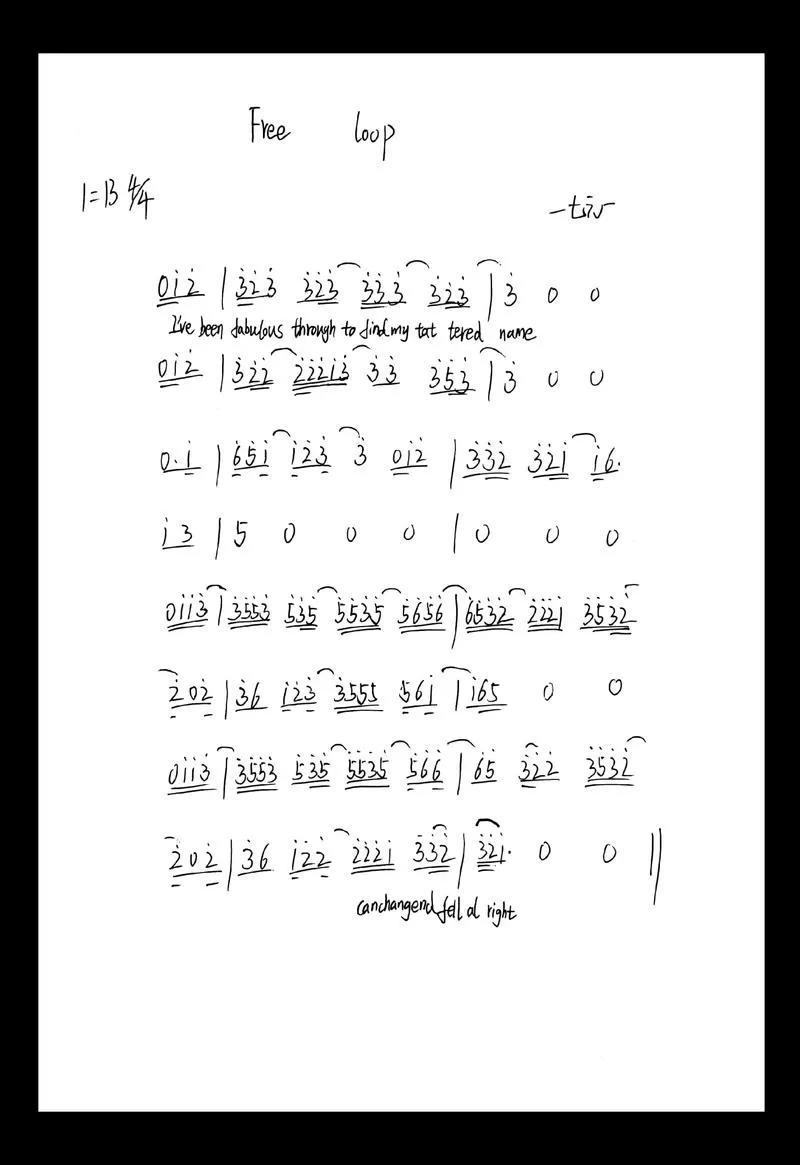 Free loop
1=B 4/4
012 | 323 323 333 323 | 3 0 0
I've been fabulous through to find my tat tered name
012 | 322 22213 33 353 | 3 0 0
0·1 | 651 123 3 012 | 332 321 16·
13 | 5 0 0 0 | 0 0 0
0113 | 3553 535 5535 5656 | 6532 2221 3532
202 | 36 123 3555 561 | 165 0 0
0113 | 3553 535 5535 566 | 65 322 3532
202 | 36 122 2221 332 | 321· 0 0 ||
canchangend fell al right